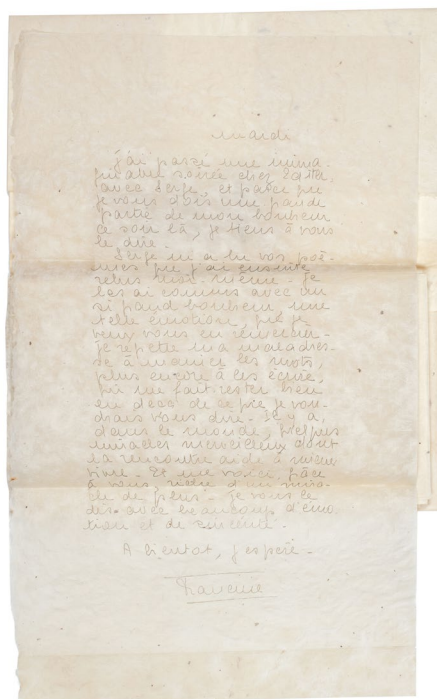 mardi
j'ai passé une mira-
culeuse soirée chez Ester
avec Serge, et parce que
je vous dois une grande
partie de mon bonheur
ce soir là, je tiens à vous
le dire.
Serge m'a lu vos poè-
mes que j'ai ensuite
relus moi-même. Je
les ai connus avec un
si grand bonheur, une
telle émotion, que je
veux vous en remercier -
je regrette ma maladres-
se à manier les mots,
plus encore à les écrire,
qui me fait rester bien
en deçà de ce que je vou-
drais vous dire - Il y a,
dans le monde, quelques
miracles merveilleux dont
la rencontre aide à mieux
vivre - Et me voici, grâce
à vous, riche d'un mira-
cle de plus - Je vous le
dis avec beaucoup d'émo-
tion et de
A bientôt, j'espère -
Francine